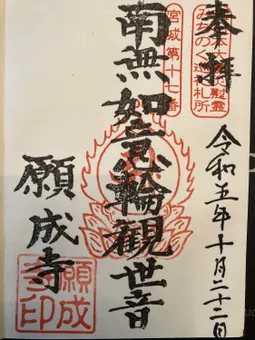 奉拝
令和五年十月二十二日
宮城第十七番
南無如意輪観世音
願成寺
願成寺印